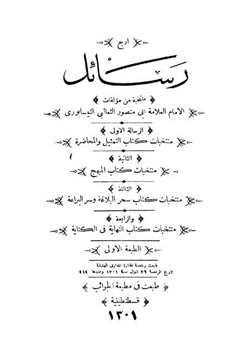 اربع
رسائل
منتخبة من مؤلفات
الامام العلامة ابى منصور الثعالبى النيسابورى
الرسالة الاولى
منتخبات كتاب التمثيل والمحاضرة
الثانية
منتخبات كتاب المبهج
الثالثة
منتخبات كتاب سحر البلاغة وسر البراعة
والرابعة
منتخبات كتاب النهاية فى الكناية
الطبعة الاولى
طبعت برخصة نظارة المعارف الجليلة
تاريخ الرخصة ٢٦ شوال سنة ١٣٠١ وعددها
طبعت فى مطبعة الجوائب
قسطنطينية
١٣٠١